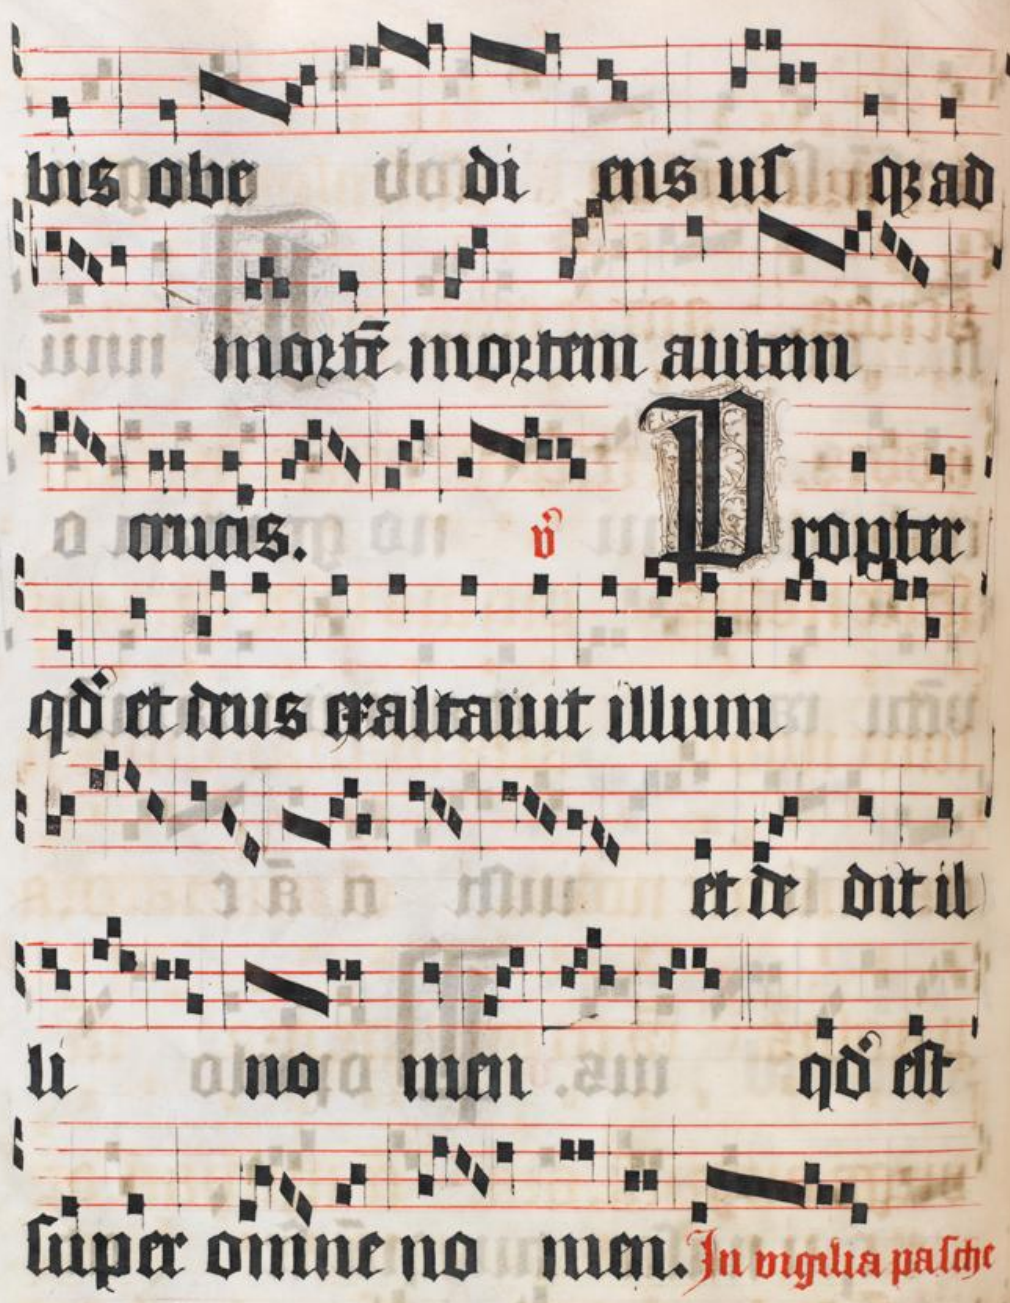 bis obe di ens uſ qꝫ ad
mortē mortem autem
crucis. v̓ Propter
qd̓ et deus exaltauit illum
et de dit il
li no men qd̓ eſt
ſuper omne no men. In vigilia paſche